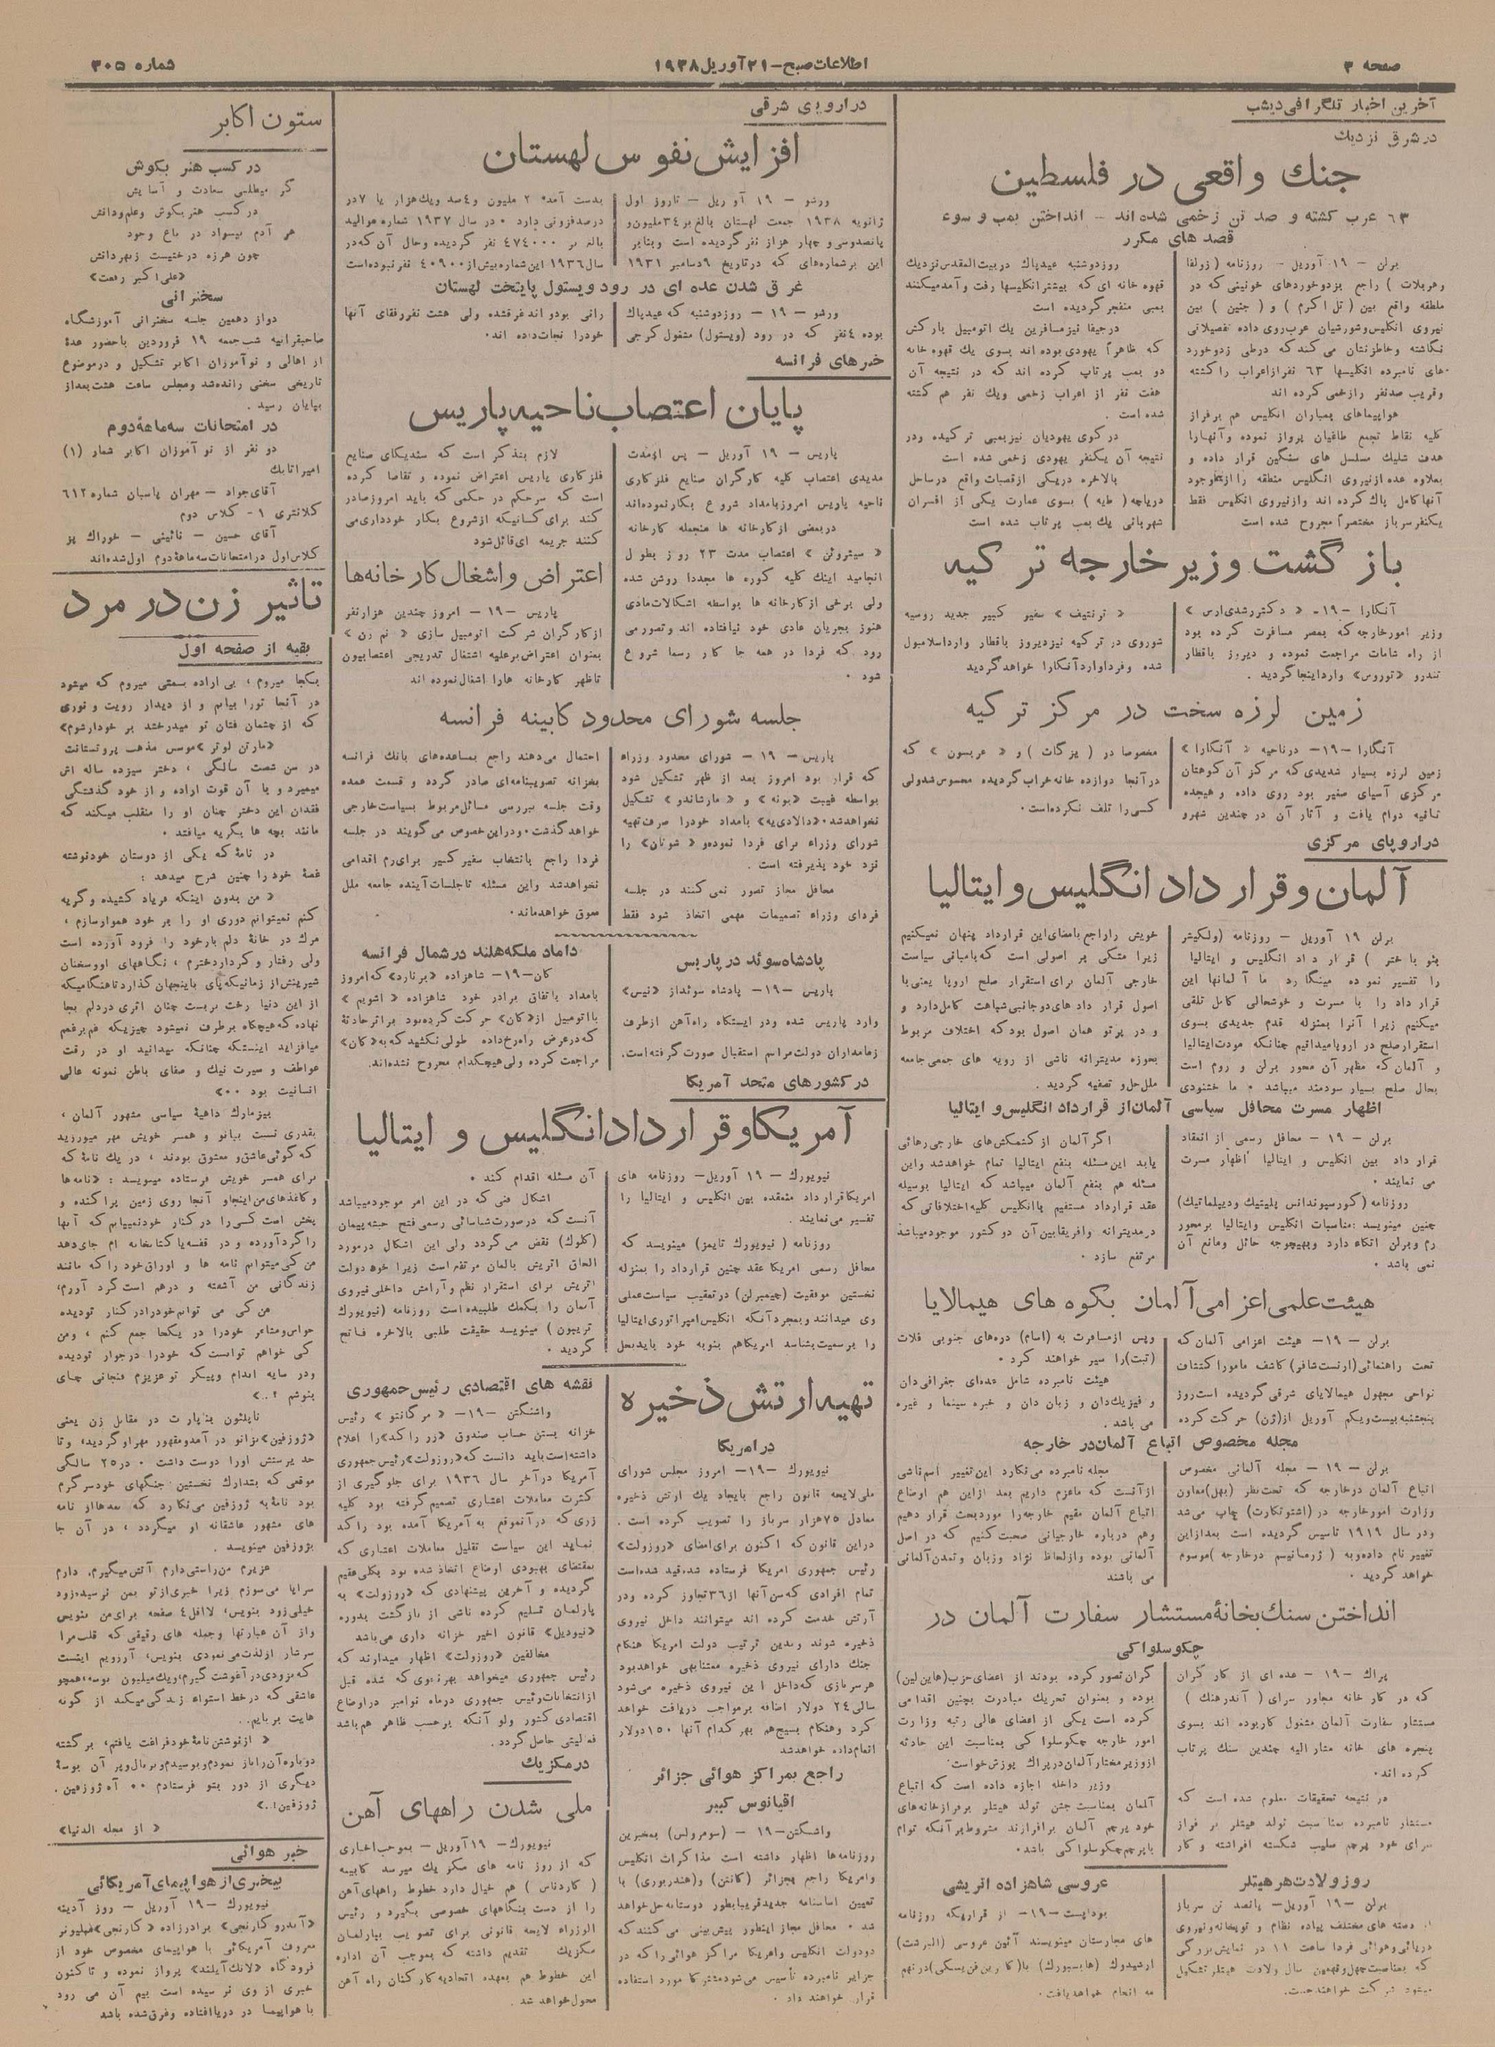 صفحه ۳
اطلاعات صبح - ۲۱ آوریل ۱۹۳۸
شماره ۳۰۵
آخرین اخبار تلگرافی دیشب
در شرق نزدیك
جنك واقعی در فلسطین
۶۳ عرب کشته و صد تن زخمی شده اند - انداختن بمب و سوء
قصد های مکرر
برلن - ۱۹ آوریل - روزنامه (زولفا
وهر بلات) راجع بزدوخوردهای خونینی که در
منطقه واقع بین (تل اکرم) و (جنین) بین
نیروی انگلیس وشورشیان عرب روی داده تفصیلاتی
نگاشته وخاطرنشان می کند که درطی زدوخورد
های نامبرده انگلیسها ۶۳ نفر ازاعراب را کشته
وقریب صدنفر رازخمی کرده اند
هواپیماهای بمباران انگلیس هم برفراز
کلیه نقاط تجمع طاغیان پرواز نموده وآنهارا
هدف شلیك مسلسل های سنگین قرار داده و
بعلاوه عده ازنیروی انگلیس منطقه را ازوجود
آنها کامل پاك کرده اند وازنیروی انگلیس فقط
یکنفر سرباز مختصراً مجروح شده است
روز دوشنبه عیدپاك دربیت المقدس نزدیك
قهوه خانه ای که بیشتر انگلیسها رفت وآمد میکنند
بمبی منفجر گردیده است
درحیفا نیز مسافرین یك اتومبیل بارکش
که ظاهراً یهودی بوده اند بسوی یك قهوه خانه
دو بمب پرتاب کرده اند که در نتیجه آن
هفت نفر از اعراب زخمی ویك نفر هم کشته
شده است .
در کوی یهودیان نیز بمبی ترکیده ودر
نتیجه آن یکنفر یهودی زخمی شده است
بالاخره دریکی ازقصبات واقع درساحل
دریاچه (طبه) بسوی عمارت یکی از افسران
شهربانی یك بمب پرتاب شده است
باز گشت وزیر خارجه تر کیه
آنکارا -۱۹- « دکتررشدی ارس »
وزیر امورخارجه که بمصر مسافرت کرده بود
از راه شامات مراجعت نموده و دیروز باقطار
تندرو «توروس» وارداینجا گردید .
« ترنتیف » سفیر کبیر جدید روسیه
شوروی در ترکیه نیزدیروز باقطار وارداسلامبول
شده وفرداواردآنکارا خواهدگردید
زمین لرزه سخت در مرکز ترکیه
آنگارا -۱۹- درناحیه « آنکارا »
زمین لرزه بسیار شدیدی که مرکز آن کوهتان
مرکزی آسیای صغیر بود روی داده وهیجده
ثانیه دوام یافت و آثار آن درچندین شهرو
مخصوصا در ( یزگات ) و « هریسون » که
درآنجا دوازده خانه خراب گردیده محسوس شدولی
کسی را تلف نکرده است .
دراروپای مرکزی
آلمان و قرار داد انگلیس و ایتالیا
برلن ۱۹ آوریل - روزنامه (ولکیشر
بئو باختر ) قرار داد انگلیس و ایتالیا
را تفسیر نموده مینگارد ما آلمانها این
قرار داد را با مسرت و خوشحالی کامل تلقی
میکنیم زیرا آنرا بمنزله قدم جدیدی بسوی
استقرارصلح در اروپامیدانیم چنانکه مودت ایتالیا
و آلمان که مظهر آن محور برلن و روم است
بحال صلح بسیار سودمند میباشد . ما خشنودی
خویش راراجع بامضای این قرارداد پنهان نمیکنیم
زیرا متکی بر اصولی است که بامبانی سیاست
خارجی آلمان برای استقرار صلح اروپا یعنی با
اصول قرار داد های دوجانبی شباهت کامل دارد و
و در پرتو همان اصول بود که اختلاف مربوط
بحوزه مدیترانه ناشی از رویه های جمعی جامعه
ملل حل و تصفیه گردید .
اظهار مسرت محافل سیاسی آلمان از قرار داد انگلیس و ایتالیا
برلن - ۱۹ - محافل رسمی از انعقاد
قرار داد بین انگلیس و ایتالیا اظهار مسرت
می نمایند .
روزنامه (کورسپوندانس پلیتیك ودیپلماتیك)
چنین مینویسد : مناسبات انگلیس وایتالیا برمحور
رم وبرلن اتکاء دارد وبهیچوجه حائل ومانع آن
نمی باشد .
اگر آلمان از کشمکش های خارجی رهائی
یابد این مسئله بنفع ایتالیا تمام خواهدشد واین
مسئله هم بنفع آلمان میباشد که ایتالیا بوسیله
عقد قرارداد مستقیم باانگلیس کلیه اختلافاتی که
درمدیترانه وافریقابین آن دو کشور موجودمیباشد
مرتفع سازد .
هیئت علمی اعزامی آلمان بکوه های هیمالایا
برلن - ۱۹- هیئت اعزامی آلمان که
تحت راهنمائی (ارنست شافر) کاشف مامور اکتشاف
نواحی مجهول هیمالایای شرقی گردیده است روز
پنجشنبه بیست ویکم آوریل از(ژن) حرکت کرده
وپس ازمسافرت به (اسام) دره های جنوبی فلات
(تبت) را سیر خواهند کرد .
هیئت نامبرده شامل عده ای جغرافی دان
و فیزیك دان و زبان دان و خبره سینما و غیره
می باشد .
مجله مخصوص اتباع آلمان در خارجه
برلن - ۱۹ - مجله آلمانی مخصوص
اتباع آلمان درخارجه که تحت نظر (بهل) معاون
وزارت امورخارجه در (اشتوتکارت) چاپ می شد
ودر سال ۱۹۱۹ تاسیس گردیده است بعد ازاین
تغییر نام داده وبه (ژرمانیسم درخارجه) موسوم
خواهد گردید .
مجله نامبرده می نکارد این تغییر اسم ناشی
از آنست که ماعزم داریم بعد ازاین هم اوضاع
اتباع آلمان مقیم خارجه را موردبحث قرار دهیم
وهم درباره خارجیانی صحبت کنیم که در اصل
آلمانی بوده وازلحاظ نژاد وزبان وتمدن آلمانی
می باشند
انداختن سنك بخانۀ مستشار سفارت آلمان در
چکوسلواکی
پراك - ۱۹ - عده ای از کار گران
که در کار خانه مجاور سرای ( آندرهنك )
مستشار سفارت آلمان مشغول کاربوده اند بسوی
پنجره های خانه مشارالیه چندین سنك پرتاب
کرده اند .
در نتیجه تحقیقات معلوم شده است که
مستشار نامبرده بمناسبت تولد هیتلر در فراز
سرای خود پرچم صلیب شکسته افراشته و کار
گران تصور کرده بودند از اعضای حزب (هاین لین)
بوده و بعنوان تحریك مبادرت بچنین اقدامی
کرده است یکی از اعضای عالی رتبه وزارت
امور خارجه چکوسلواکی بمناسبت این حادثه
ازوزیر مختار آلمان درپراك پوزش خواست .
وزیر داخله اجازه داده است که اتباع
آلمان بمناسبت جشن تولد هیتلر برفرازخانه های
خود پرچم آلمان برافرازند مشروط برآنکه توام
باپرچم چکوسلواکی باشد .
روز ولادت هر هیتلر
برلن - ۱۹ آوریل - پانصد تن سرباز
از دسته های مختلف پیاده نظام و توپخانه ونیروی
دریائی وهوائی فردا ساعت ۱۱ در نمایش بزرگی
که بمناسبت چهل ونهمین سال ولادت هیتلر تشکیل
میشود شرکت خواهند جست .
عروسی شاهزاده اتریشی
بوداپست -۱۹- از قراریکه روزنامه
های مجارستان مینویسند آئین عروسی (البرشت)
ارشیدوك (هابسبورك) با( کاترین فن یسکی) درنهم
مه انجام خواهدیافت .
در اروپای شرقی
افزایش نفوس لهستان
ورشو - ۱۹ آوریل - تاروز اول
ژانویه ۱۹۳۸ جمعت لهستان بالغ بر ۳۴ ملیون و
پانصدوسی و چهار هزار نفر گردیده است وبنابر
این برشماره های که درتاریخ ۹ دسامبر ۱۹۳۱
بدست آمده ۲ ملیون و ۴ صد ویك هزار یا ۷ در
درصد فزونی دارد . در سال ۱۹۳۷ شماره موالید
بالغ بر ۴۷۴۰۰۰ نفر گردیده وحال آن که در
سال ۱۹۳۶ این شماره بیش از ۴۰۹۰۰ نفر نبوده است
غرق شدن عده ای در رود ویستول پایتخت لهستان
ورشو - ۱۹ - روزدوشنبه که عیدپاك
بوده ۴ نفر که در رود (ویستول) مشغول کرجی
رانی بودند غرقشده ولی هشت نفررفقای آنها
خودرا نجات داده اند .
خبرهای فرانسه
پایان اعتصاب ناحیه پاریس
پاریس - ۱۹ آوریل - پس ازمدت
مدیدی اعتصاب کلیه کارگران صنایع فلزکاری
ناحیه پاریس امروز بامداد شروع بکار نموده اند
دربعضی ازکارخانه ها منجمله کارخانه
« سیتروئن » اعتصاب مدت ۲۳ روز بطول
انجامید اینك کلیه کوره ها مجددا روشن شده
ولی برخی از کارخانه ها بواسطه اشکالات مادی
هنوز بجریان عادی خود نیافتاده اند وتصورمی
رود که فردا در همه جا کار رسما شروع
شود .
لازم بتذکر است که سندیکای صنایع
فلزکاری پاریس اعتراض نموده و تقاضا کرده
است که سرحکم در حکمی که باید امروزصادر
کند برای کسانیکه ازشروع بکار خودداری می
کنند جریمه ای قائل شود
اعتراض واشغال کارخانه ها
پاریس -۱۹- امروز چندین هزارنفر
ازکارگران شرکت اتومبیل سازی « نم رن »
بعنوان اعتراض برعلیه اشتغال تدریجی اعتصابیون
تاظهر کارخانه هارا اشغال نموده اند
جلسه شورای محدود کابینه فرانسه
پاریس - ۱۹ - شورای محدود وزراء
که قرار بود امروز بعد از ظهر تشکیل شود
بواسطه غیبت «بونه » و « مارشاندو » تشکیل
نخواهدشد . «دالادیه» بامداد خودرا صرف تهیه
شورای وزراء برای فردا نموده و « شوتان » را
نزد خود پذیرفته است .
محافل مجاز تصور نمی کنند در جلسه
فردای وزراء تصمیمات مهمی اتخاذ شود فقط
احتمال می دهند راجع بمساعده های بانك فرانسه
بخزانه تصویبنامه ای صادر گردد و قسمت عمده
وقت جلسه ببررسی مسائل مربوط بسیاست خارجی
خواهد گذشت . ودراین خصوص می گویند در جلسه
فردا راجع بانتخاب سفیر کبیر برای رم اقدامی
نخواهدشد واین مسئله تاجلسات آینده جامعه ملل
معوق خواهدماند .
پادشاه سوئد در پاریس
پاریس -۱۹- پادشاه سوئد از «نیس»
وارد پاریس شده ودر ایستگاه راه آهن ازطرف
زمامداران دولت مراسم استقبال صورت گرفته است.
داماد ملکه هلند در شمال فرانسه
کان-۱۹- شاهزاده «برنارد» که امروز
بامداد باتفاق برادر خود شاهزاده « اشویم »
بااتومبیل از «کان» حرکت کرده بود براثرحادثۀ
که درعرض راه رخ داده طولی نکشید که به «کان»
مراجعت کرده ولی هیچکدام مجروح نشده اند.
در کشورهای متحد آمریکا
آمریکا و قرار داد انگلیس و ایتالیا
نیویورك - ۱۹ آوریل- روزنامه های
امریکا قرار داد منعقده بین انگلیس و ایتالیا را
تفسیر می نمایند .
روزنامه ( نیویورك تایمز) مینویسد که
محافل رسمی امریکا عقد چنین قرارداد را بمنزله
نخستین موفقیت (چیمبرلن) درتعقیب سیاست عملی
وی میدانند وبمجرد آنکه انگلیس امپراتوری ایتالیا
را برسمیت بشناسد امریکاهم بنوبه خود بایدبحل
آن مسئله اقدام کند .
اشکال فنی که در این امر موجودمیباشد
آنست که درصورت شناسائی رسمی فتح حبشه پیمان
(کلوك) نقض می گردد ولی این اشکال درمورد
الحاق اتریش بالمان مرتفع است زیرا خود دولت
اتریش برای استقرار نظم وآرامش داخلی نیروی
آلمان را بکمك طلبیده است روزنامه (نیویورك
تریبون) مینویسد حقیقت طلبی بالاخره فاتح
گردید .
تهیه ارتش ذخیره
در امریکا
نیویورك -۱۹- امروز مجلس شورای
ملی لایحه قانون راجع بایجاد یك ارتش ذخیره
معادل ۷۵ هزار سرباز را تصویب کرده است .
دراین قانون که اکنون برای امضای «روزولت»
رئیس جمهوری امریکا فرستاده شده قید شده است
تمام افرادی که سن آنها از ۳۶ تجاوز کرده ودر
آرتش خدمت کرده اند میتوانند داخل نیروی
ذخیره شوند وبدین ترتیب دولت امریکا هنگام
جنك دارای نیروی ذخیره معتنابهی خواهدبود
هرسربازی که داخل این نیروی ذخیره می شود
سالی ۲۴ دولار اضافه برمواجب دریافت خواهد
کرد وهنگام بسیج هم بهر کدام آنها ۱۵۰ دولار
انعام داده خواهدشد
راجع بمراکز هوائی جزائر
اقیانوس کبیر
واشنگتن-۱۹ - (سومرولس) بمخبرین
روزنامه ها اظهار داشته است مذاکرات انگلیس
وامریکا راجع بجزائر (کانتن) و(هندربوری) با
تعیین اساسنامه جدیدقریبابطور دوستانه حل خواهد
شد . محافل مجاز اینطور پیش بینی می کنند که
دودولت انگلیس وامریکا مراکز هوائی را که در
جزایر نامبرده تأسیس می شودمشترکا مورد استفاده
قرار خواهند داد .
نقشه های اقتصادی رئیس جمهوری
واشنگتن -۱۹- « مرگانتو » رئیس
خزانه بستن حساب صندوق «زر راکد» را اعلام
داشته است باید دانست که «روزولت» رئیس جمهوری
آمریکا درآخر سال ۱۹۳۶ برای جلوگیری از
کثرت معاملات اعتباری تصمیم گرفته بود کلیه
زری که درآنموقع به آمریکا آمده بود راکد
نماید این سیاست تقلیل معاملات اعتباری که
بمقتضای بهبودی اوضاع اتخاذ شده بود بکلی عقیم
گردیده و آخرین پیشنهادی که «روزولت» به
پارلمان تسلیم کرده ناشی از بازگشت بدوره
«نیودیل» قانون اخیر خزانه داری می باشد
مخالفین «روزولت» اظهار میدارند که
رئیس جمهوری میخواهد بهر نحوی که شده قبل
ازانتخابات رئیس جمهوری درماه نوامبر دراوضاع
اقتصادی کشور ولو آنکه برحسب ظاهر هم باشد
فعالیتی حاصل گردد .
در مکزیك
ملی شدن راههای آهن
نیویورك- ۱۹ آوریل - بموجب اخباری
که از روز نامه های مکزیك میرسد کابینه
( کاردناس ) هم خیال دارد خطوط راههای آهن
را از دست بنگاههای خصوصی بگیرد و رئیس
الوزراه لایحه قانونی برای تصویب بپارلمان
مکزیك تقدیم داشته که بموجب آن اداره
این خطوط هم بعهده اتحادیه کارکنان راه آهن
محول خواهد شد .
ستون اکابر
در کسب هنر بکوش
گر میطلبی سعادت و آسایش
در کسب هنر بکوش وعلم ودانش
هر آدم بیسواد در باغ وجود
چون هرزه درختیست زبهردانش
«علی اکبر رفعت»
سخنرانی
دواز دهمین جلسه سخنرانی آموزشگاه
صاحبقرانیه شب جمعه ۱۹ فروردین باحضور عدۀ
از اهالی و نو آموزان اکابر تشکیل و درموضوع
تاریخی سخنی رانده شد ومجلس ساعت هشت بعداز
بپایان رسید .
در امتحانات سه ماهۀ دوم
دو نفر از نو آموزان اکابر شمار (۱)
امیراتابك
آقای جواد - مهران پاسبان شماره ۶۱۲
کلانتری ۱ - کلاس دوم
آقای حسین - نائینی - خوراك پز
کلاس اول درامتحانات سه ماهۀ دوم اول شده اند
تاثیر زن در مرد
بقیه از صفحه اول
بکجا میروم ، بی اراده بسمتی میروم که میشود
در آنجا تورا بیابم و از دیدار رویت و نوری
که از چشمان فتان تو میدرخشد بر خوردارشوم»
«مارتن لوتر »موسس مذهب پروتستانت
در سن شصت سالگی ، دختر سیزده ساله اش
میمیرد و با آن قوت اراده و از خود گذشتگی
فقدان این دختر چنان او را منقلب میکند که
مانند بچه ها بگریه میافتد .
در نامۀ که یکی از دوستان خودنوشته
غصۀ خود را چنین شرح میدهد :
« من بدون اینکه فریاد کشیده وگریه
کنم نمیتوانم دوری او را بر خود هموارسازم ،
مرك در خانۀ دلم بارخود را فرود آورده است
ولی رفتار و کرداردخترم ، نگاههای اووسخنان
شیرینش از زمانیکه پای باینجهان گذارد تاهنگامیکه
از این دنیا رخت بربست چنان اثری دردلم بجا
نهاده که هیچگاه برطرف نمیشود چیزیکه غم برغمم
میافزاید اینستکه چنانکه میدانید او در رقت
عواطف و سیرت نیك و صفای باطن نمونه عالی
انسانیت بود ۰۰»
بیزمارك داهیۀ سیاسی مشهور آلمان ،
بقدری نست ببانو و همسر خویش مهر میورزید
که گوئی عاشق و معشوق بودند ، در یك نامۀ که
برای همسر خویش فرستاده مینویسد : «نامه ها
و کاغذهای من اینجاو آنجا روی زمین پراکنده و
پخش است کسی را در کنار خودنمییابم که آنها
را گردآورده و در قفسه یا کتابخانه ام جای دهد
من کی میتوانم نامه ها و اوراق خود را که مانند
زندگانی من آشفته و درهم است گرد آورم،
من کی می توانم خودرادرکنار تودیده
حواس ومشاعر خودرا در یکجا جمع کنم ، ومن
کی خواهم توانست که خودرا درجوار تودیده
ودر سایه اندام وپیکر توعزیزم فنجانی چای
بنوشم ؟ ..»
ناپلئون بناپارت در مقابل زن یعنی
«ژوزفین» بزانو در آمدومقهور مهراوگردید، وتا
حد پرستش اورا دوست داشت . در ۲۵ سالگی
موقعی که بتدارك نخستین جنگهای خودسرگرم
بود نامۀ به ژوزفین می نکارد که بعدها از نامه
های مشهور عاشقانه او میگردد ، در آن جا
بژوزفین مینویسد .
عزیزم من راستی دارم آتش میگیرم، دارم
سراپا می سوزم زیرا خبری ازتو بمن نرسیده زود
خیلی زود بنویس؛ لااقل ۴ صفحه برای من بنویس
واز آن عبارتها وجمله های رقیقی که قلب مرا
سرشار ازلذت می نمودی بنویس، آرزویم اینست
که بزودی درآغوشت گیرم، ویك میلیون بوسه، همچو
عاشقی که درخط استواء زندگی میکند از گونه
هایت بربایم..
« ازنوشتن نامۀ خودفراغت یافتم، برگشته
دوباره آن راباز نمودم و بوسیدم و بربال وپر آن بوسۀ
دیگری از دور بتو فرستادم ۰۰ آه ژوزفین .
ژوزفین..»
« از مجله الدنیا»
خبر هوائی
بیخبری از هواپیمای آمریکائی
نیویورك - ۱۹ آوریل - روز آدینه
«آندروکارنجی» برادرزاده «کارنجی»میلیونر
معروف آمریکائی با هواپیمای مخصوص خود از
فرودگاه «لانك آیلند» پرواز نموده و تاکنون
خبری از وی نرسیده است بیم آن می رود
با هواپیما در دریاافتاده وغرق شده باشد